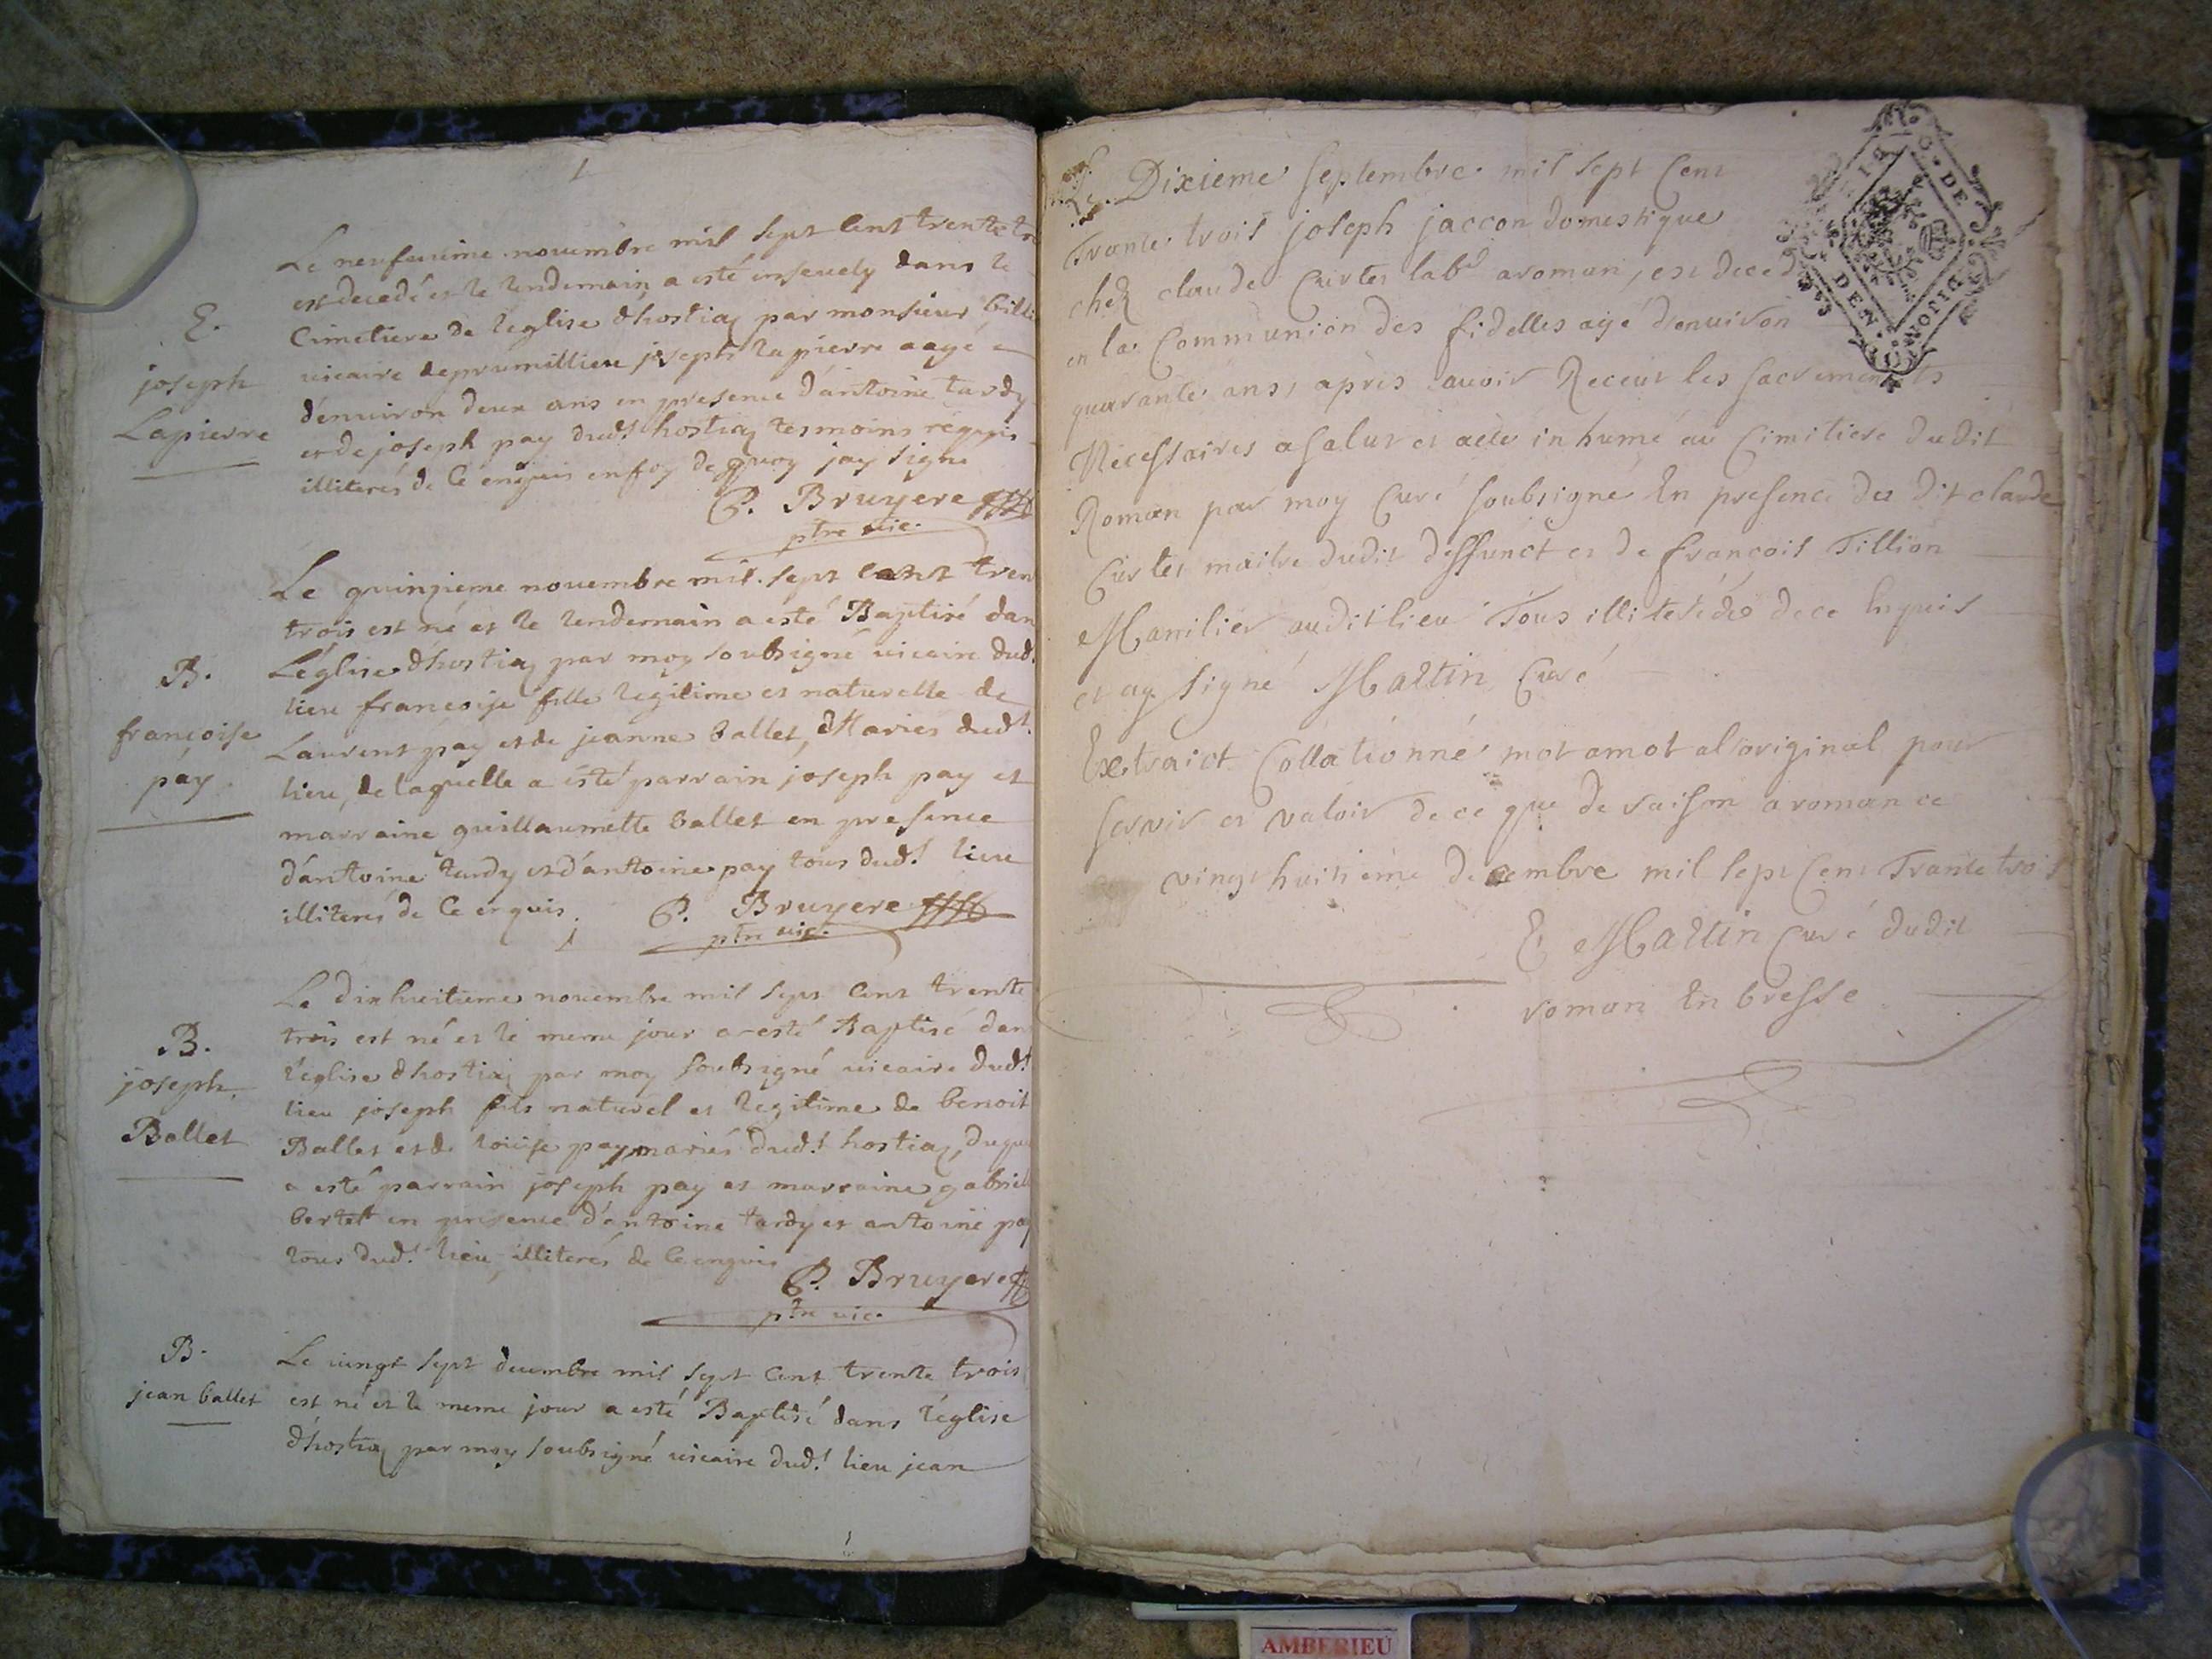 E.
joseph
Lapierre
Le neufuieme nouembre mil sept cent trente
est decedé et le lendemain a esté enseuely dans le
Cimetiere de l'eglise d'hostiaz par monsieur
uicaire de prumillieu joseph lapierre aagé
d'enuiron deux ans en presence d'antoine tardy
et de joseph pay dud.t hostiaz tesmoins requis
illiterés de ce enquis en foy de quoy jay signé
P. Bruyere
ptre uic.
B.
françoise
pay
Le quinzieme nouembre mil sept cent tren
trois est né et le lendemain a esté Baptisé dan
L'eglise d'hostiaz par moy soubsigné uicaire dud.t
lieu françoise fille legitime et naturelle de
Laurent pay et de jeanne ballet, Mariés dud.t
lieu, de laquelle a esté parrain joseph pay et
marraine guillaumette ballet en presence
d'antoine tardy et d'antoine pay tous dud.t lieu
illiterés de ce enquis.
P. Bruyere
ptre uic.
B.
joseph
Ballet
Le dix huitieme nouembre mil sept cent trente
trois est né et le meme jour a esté Baptisé dan
l'eglise d'hostiaz par moy soubsigné uicaire dud.t
lieu joseph fils naturel et legitime de benoit
Ballet et de loüise pay mariés dud.t hostiaz, duque
a esté parrain joseph pay et marraine gabriel
bertet en presence d'antoine tardy et antoine pay
tous dud.t lieu illiterés de ce enquis
P. Bruyere
ptre uic.
B.
jean ballet
Le uingt sept decembre mil sept cent trente trois
est né et le meme jour a esté Baptisé dans l'eglise
d'hostiaz par moy soubsigné uicaire dud.t lieu jean
Le Dixieme septembre mil sept Cent
Trante trois joseph jaccon domestique
chez claude Curtet lab.r a roman, est deced
en la Communion des fidelles agé d'enuiron
quarante ans, après auoir Receut les sacrements
Necessaires a salut et aété inhumé au Cimitiere dudit
Roman par moy Curé soubsigné En presence du dit claude
Curtet maitre dudit deffunct et de françois Tillion
Manilier audit lieu Tous illiteré de ce Enquis
et ay signé Martin Curé
Extraict Collationné mot amot al'original pour
servir et valoir de ce que de raison a roman ce
vingt huitieme decembre mil sept Cent Trante trois
E Martin Curé dudit
roman En bresse
G. DE
DIJON
DEN
AMBERIEU